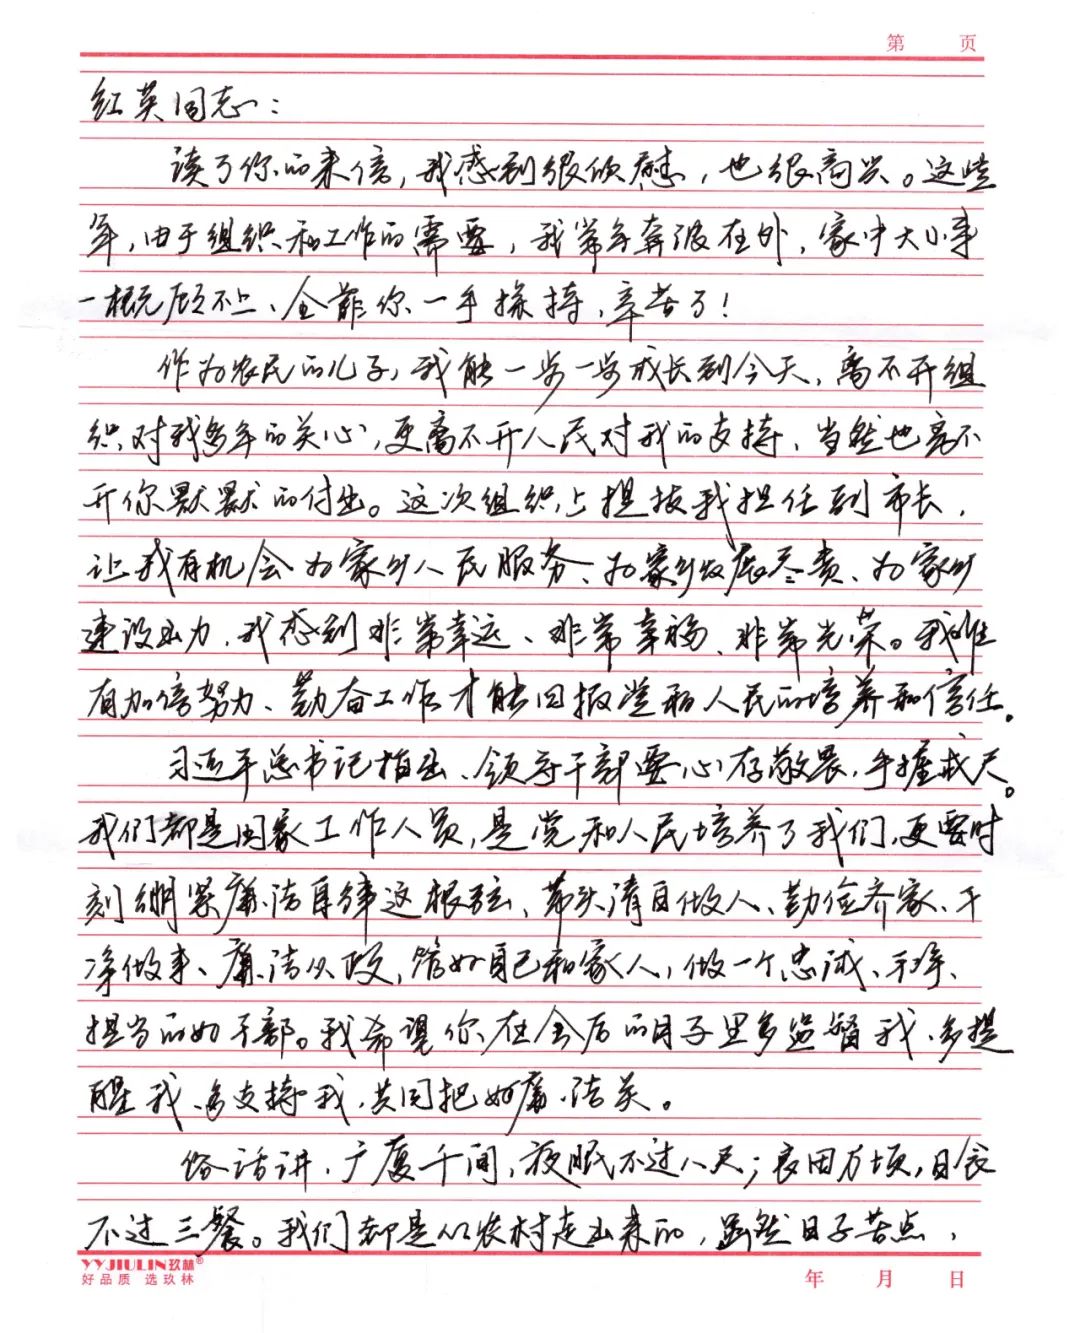 第 页
红英同志：
读了你的来信，我感到很欣慰，也很高兴。这些
年，由于组织和工作的需要，我常年奔波在外，家中大小事
一概顾不上、全靠你一手操持，辛苦了！
作为农民的儿子，我能一步一步成长到今天，离不开组
织对我多年的关心，更离不开人民对我的支持，当然也离不
开你默默的付出。这次组织上提拔我担任副市长，
让我有机会为家乡人民服务、为家乡发展尽责、为家乡
建设出力，我感到非常幸运、非常幸福、非常光荣。我唯
有加倍努力、勤奋工作才能回报党和人民的培养和信任。
习近平总书记指出、领导干部要心存敬畏，手握戒尺。
我们都是国家工作人员，是党和人民培养了我们，更要时
刻绷紧廉洁自律这根弦、带头清白做人、勤俭齐家、干
净做事、廉洁从政，管好自己和家人，做一个忠诚、干净、
担当的好干部。我希望你在今后的日子里多监督我、多提
醒我、多支持我，共同把好廉洁关。
俗话讲，广厦千间，夜眠不过八尺；良田万顷，日食
不过三餐。我们都是从农村走出来的，虽然日子苦点，
YYJIULIN玖林®
好品质 选玖林
年 月 日